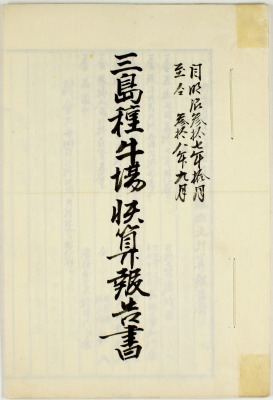 自明治参拾七年拾月
至仝参拾八年九月
三島種牛場决算報告書